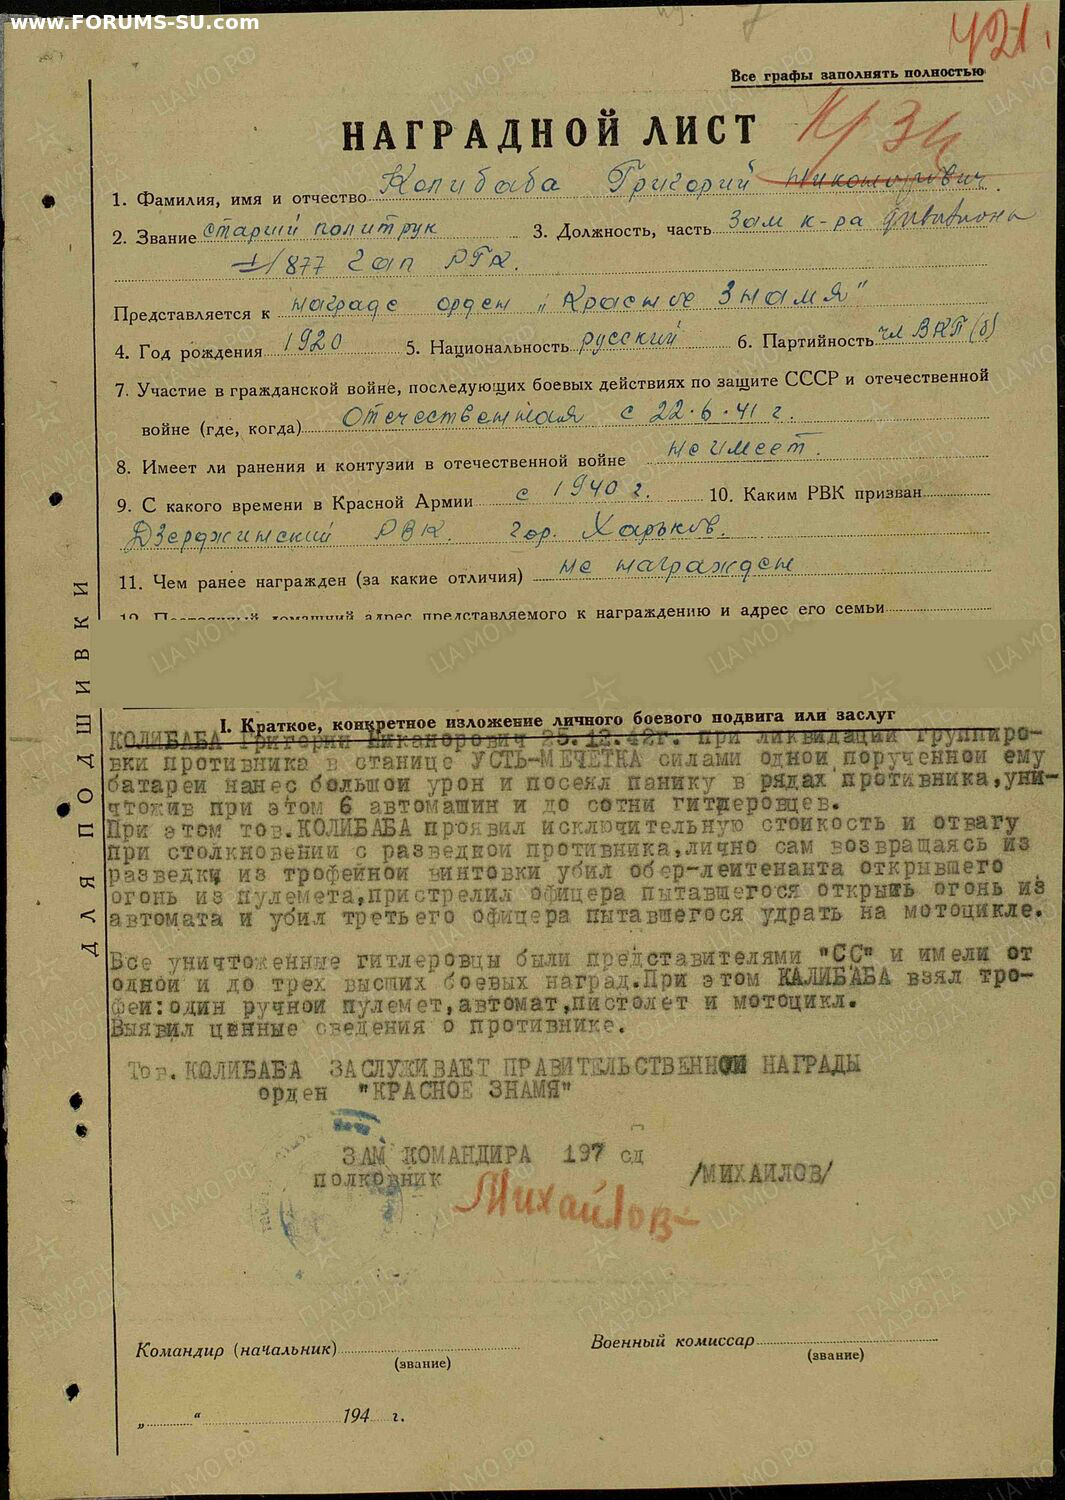 www.FORUMS-SU.com
421.
Все графы заполнять полностью
НАГРАДНОЙ ЛИСТ
КрЗн
1. Фамилия, имя и отчество Колибаба Григорий Никонорович.
2. Звание старший политрук 3. Должность, часть Зам к-ра дивизиона
1/877 гап РГК.
Представляется к награде орден „Красное Знамя"
4. Год рождения 1920 5. Национальность русский 6. Партийность чл ВКП(б)
7. Участие в гражданской войне, последующих боевых действиях по защите СССР и отечественной
войне (где, когда) Отечественная с 22.6.41 г.
8. Имеет ли ранения и контузии в отечественной войне не имеет.
9. С какого времени в Красной Армии с 1940 г. 10. Каким РВК призван
Дзержинский РВК. гор. Харьков.
11. Чем ранее награжден (за какие отличия) не награжден
12. Постоянный домашний адрес представляемого к награждению и адрес его семьи
I. Краткое, конкретное изложение личного боевого подвига или заслуг
КОЛИБАБА Григорий Никанорович 25.12.42г. при ликвидации группиро-
вки противника в станице УСТЬ-МЕЧЕТКА силами одной порученной ему
батареи нанес большой урон и посеял панику в рядах противника,уни-
чтожив при этом 6 автомашин и до сотни гитлеровцев.
При этом тов.КОЛИБАБА проявил исключительную стойкость и отвагу
при столкновении с разведкой противника,лично сам возвращаясь из
разведки из трофейной винтовки убил обер-лейтенанта открывшего
огонь из пулемета,пристрелил офицера пытавшегося открыть огонь из
автомата и убил третьего офицера пытавшегося удрать на мотоцикле.
Все уничтоженные гитлеровцы были представителями "СС" и имели от
одной и до трех высших боевых наград.При этом КАЛИБАБА взял тро-
феи:один ручной пулемет,автомат,пистолет и мотоцикл.
Выявил ценные сведения о противнике.
Тов.КОЛИБАБА ЗАСЛУЖИВАЕТ ПРАВИТЕЛЬСТВЕННОЙ НАГРАДЫ
орден "КРАСНОЕ ЗНАМЯ"
ЗАМ КОМАНДИРА 197 сд
полковник /МИХАЙЛОВ/
Михайлов
Командир (начальник) Военный комиссар
(звание) (звание)
„ “ 194 г.
ДЛЯ ПОДШИВКИ